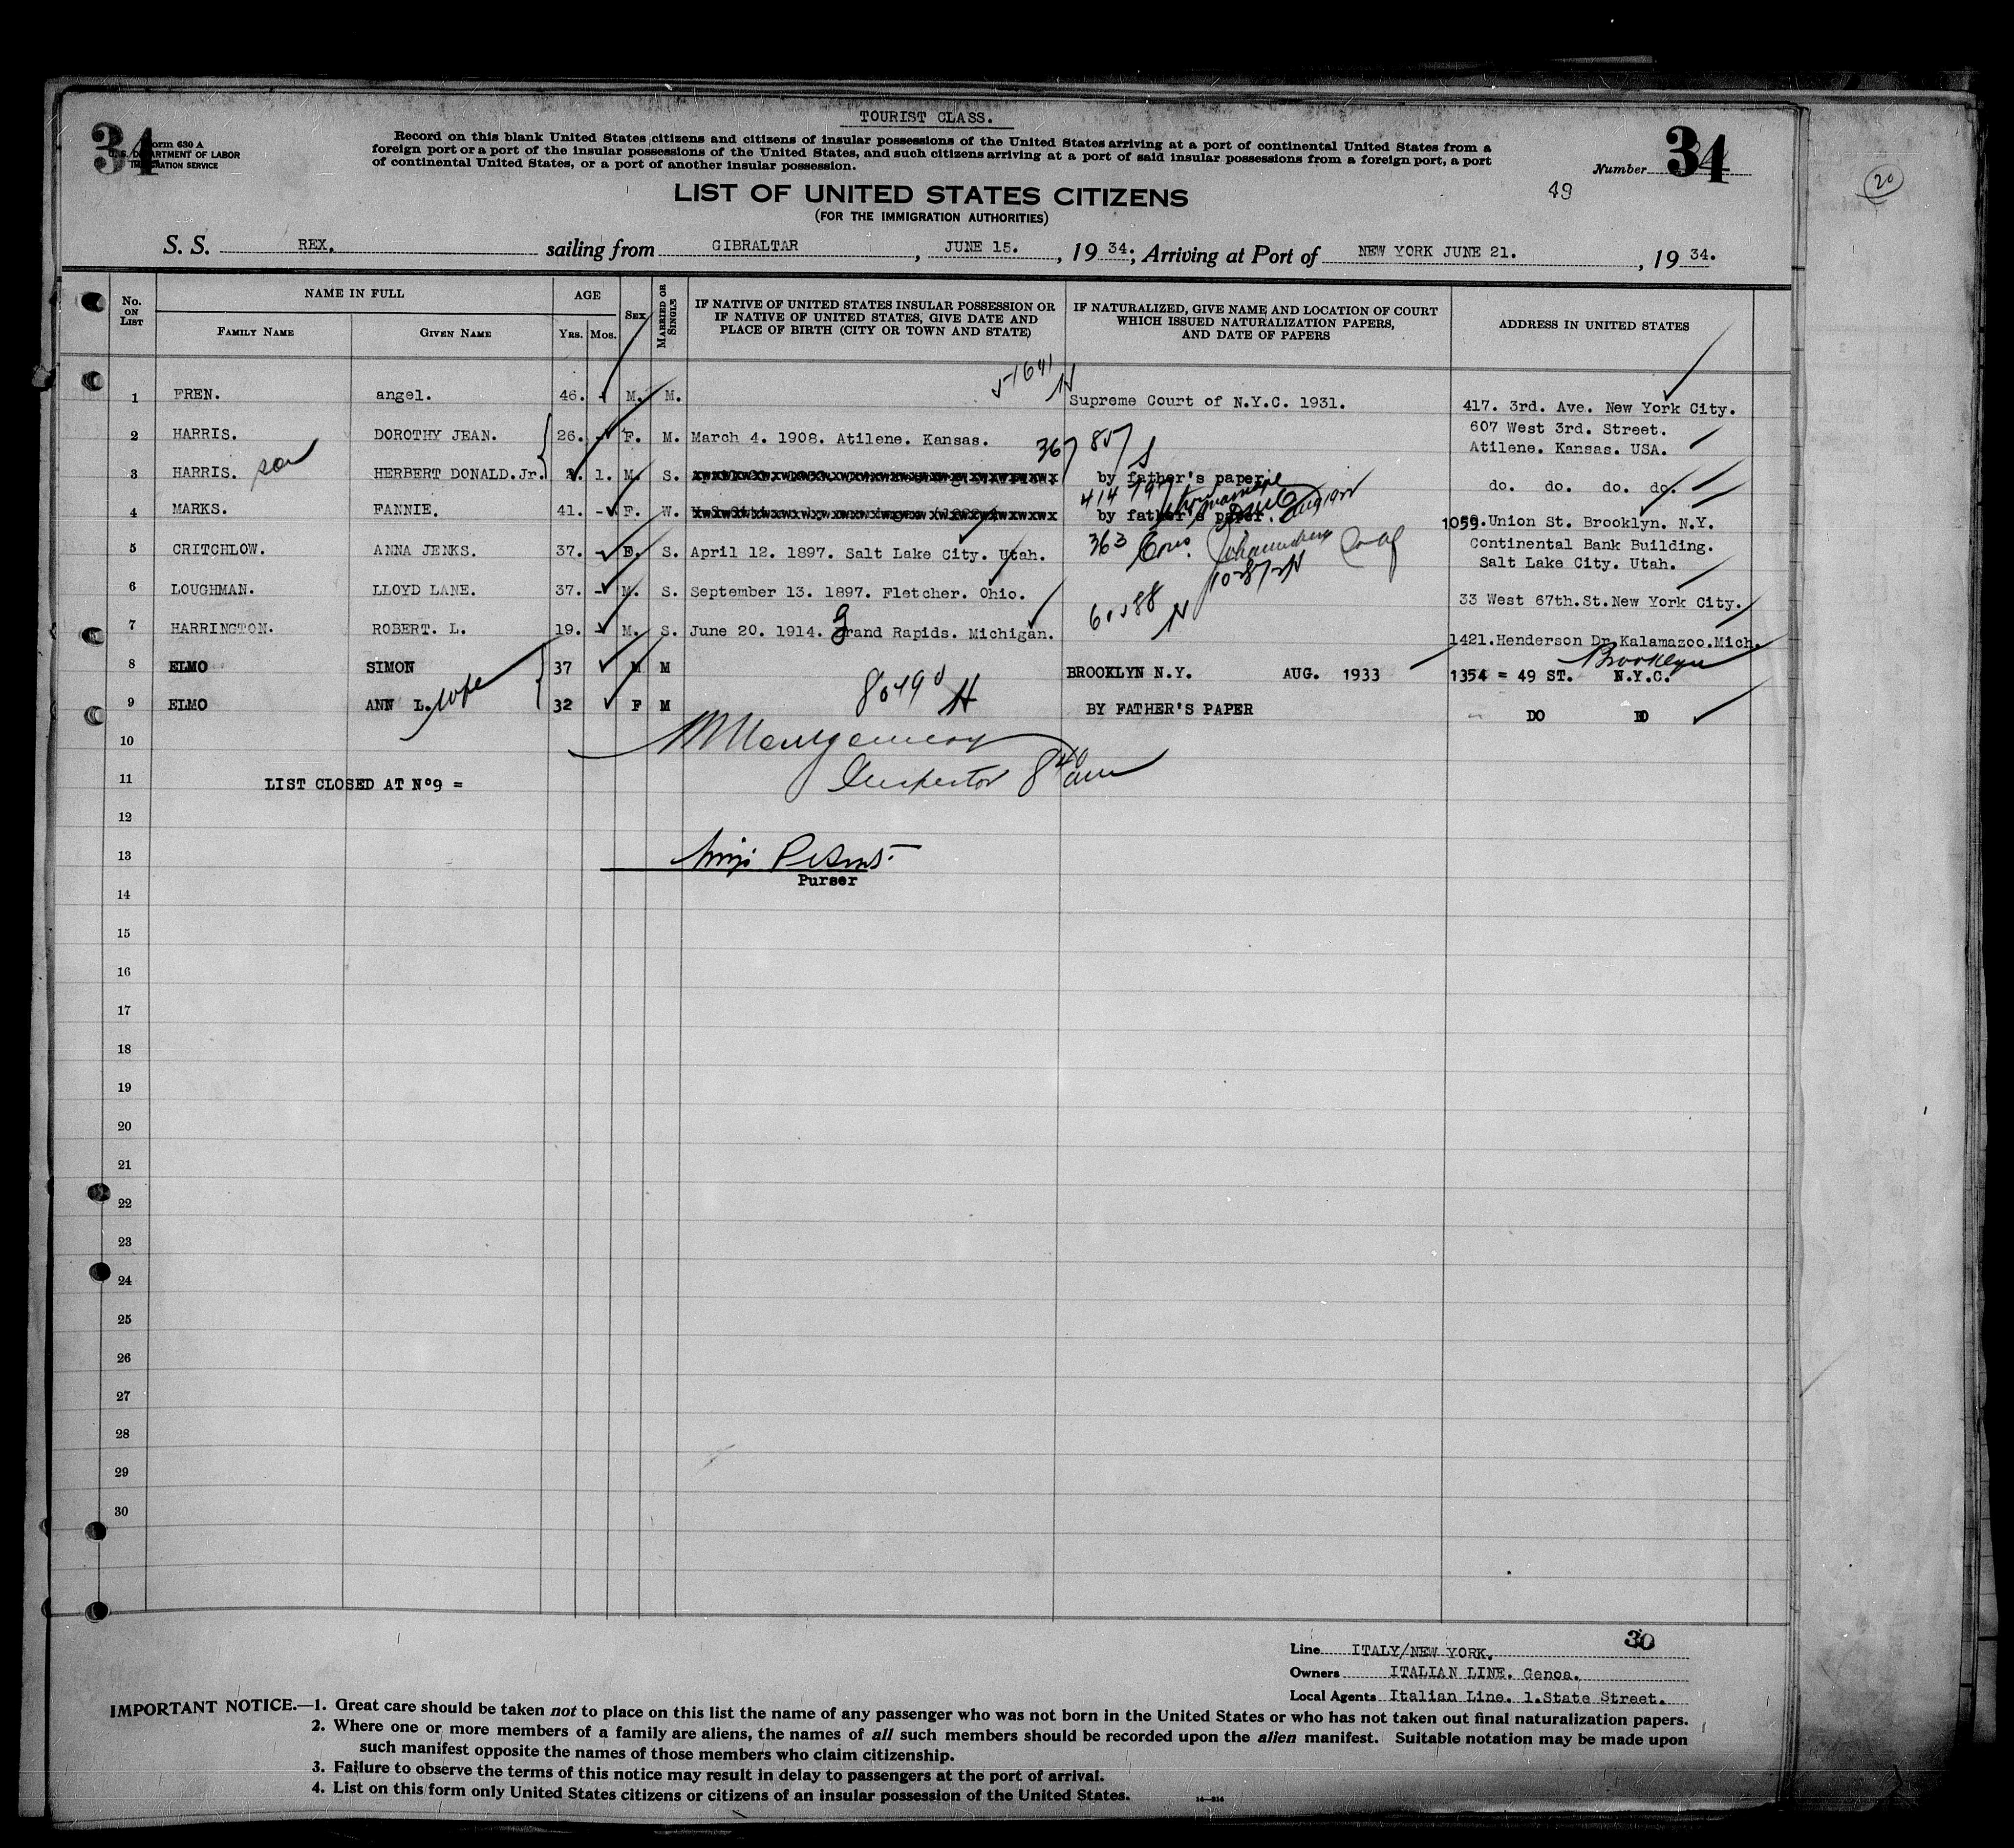 TOURIST CLASS.
34
Form 630 A
U. S. DEPARTMENT OF LABOR
IMMIGRATION SERVICE
Record on this blank United States citizens and citizens of insular possessions of the United States arriving at a port of continental United States from a
foreign port or a port of the insular possessions of the United States, and such citizens arriving at a port of said insular possessions from a foreign port, a port
of continental United States, or a port of another insular possession.
Number 34
49
20
LIST OF UNITED STATES CITIZENS
(FOR THE IMMIGRATION AUTHORITIES)
S. S. REX. sailing from GIBRALTAR, JUNE 15., 19 34.; Arriving at Port of NEW YORK JUNE 21., 19 34.
No. ON LIST
NAME IN FULL
FAMILY NAME
GIVEN NAME
AGE
YRS.
MOS.
SEX
MARRIED OR SINGLE
IF NATIVE OF UNITED STATES INSULAR POSSESSION OR
IF NATIVE OF UNITED STATES, GIVE DATE AND
PLACE OF BIRTH (CITY OR TOWN AND STATE)
IF NATURALIZED, GIVE NAME AND LOCATION OF COURT
WHICH ISSUED NATURALIZATION PAPERS,
AND DATE OF PAPERS
ADDRESS IN UNITED STATES
1 FREN. angel. 46. - M. M. Supreme Court of N.Y.C. 1931. 417. 3rd. Ave. New York City.
2 HARRIS. DOROTHY JEAN. 26. - F. M. March 4. 1908. Atilene. Kansas. 607 West 3rd. Street.
Atilene. Kansas. USA.
3 HARRIS. son HERBERT DONALD.Jr. 2. 1. M. S. by father's paper. do. do. do. do.
4 MARKS. FANNIE. 41. - F. W. by father's paper. 1059.Union St. Brooklyn. N.Y.
5 CRITCHLOW. ANNA JENKS. 37. - F. S. April 12. 1897. Salt Lake City. Utah. 363 Continental Bank Building.
Salt Lake City. Utah.
6 LOUGHMAN. LLOYD LANE. 37. - M. S. September 13. 1897. Fletcher. Ohio. 33 West 67th.St.New York City.
7 HARRINGTON. ROBERT. L. 19. - M. S. June 20. 1914. Grand Rapids. Michigan. 1421.Henderson Dr.Kalamazoo.Mich.
8 ELMO SIMON 37 M M BROOKLYN N.Y. AUG. 1933 1354 = 49 ST. N.Y.C. Brooklyn
9 ELMO ANN L. wife 32 F M BY FATHER'S PAPER DO DO
10
Montgomery
11 LIST CLOSED AT Nº9 =
Inspector 8 40 am
12
13
Purser
14
15
16
17
18
19
20
21
22
23
24
25
26
27
28
29
30
30
Line ITALY/NEW YORK.
Owners ITALIAN LINE. Genoa.
Local Agents Italian Line. 1.State Street.
IMPORTANT NOTICE.—1. Great care should be taken not to place on this list the name of any passenger who was not born in the United States or who has not taken out final naturalization papers.
2. Where one or more members of a family are aliens, the names of all such members should be recorded upon the alien manifest. Suitable notation may be made upon
such manifest opposite the names of those members who claim citizenship.
3. Failure to observe the terms of this notice may result in delay to passengers at the port of arrival.
4. List on this form only United States citizens or citizens of an insular possession of the United States.